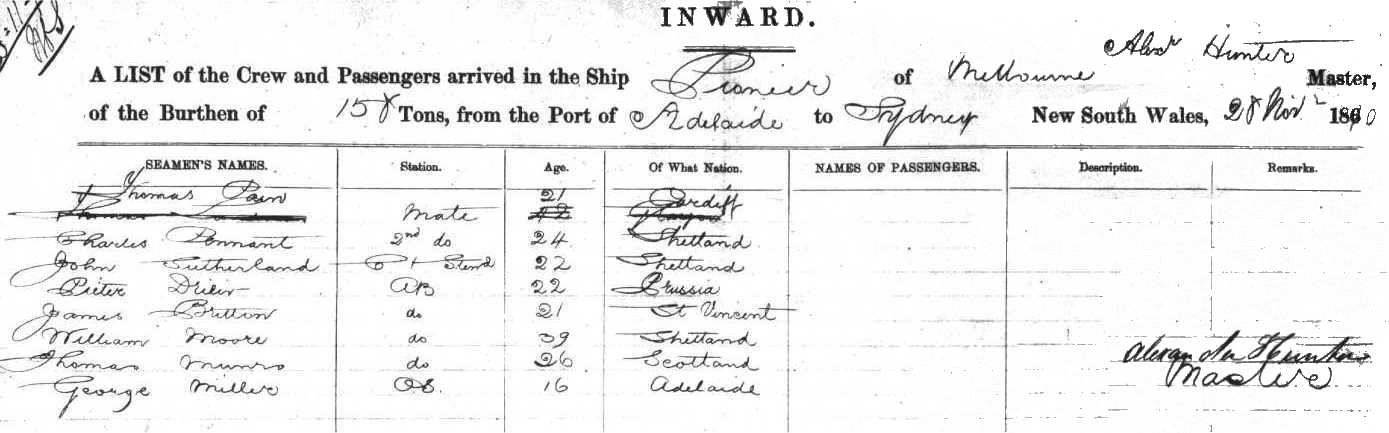 INWARD.
Alexr Hunter
A LIST of the Crew and Passengers arrived in the Ship Pioneer of Melbourne Master,
of the Burthen of 158 Tons, from the Port of Adelaide to Sydney New South Wales, 28 Novr 1870
SEAMEN'S NAMES. Station. Age. Of What Nation. NAMES OF PASSENGERS. Description. Remarks.
Thomas Pain 21 Cardiff
Thomas Mate 42
Charles Pennant 2nd do 24 Shetland
John Sutherland C & Stewd 22 Shetland
Pieter AB 22 Prussia
James Brittin do 21 St Vincent
William Moore do 39 Shetland
Thomas Munro do 26 Scotland Alexander Hunter
George Miller OS. 16 Adelaide Master